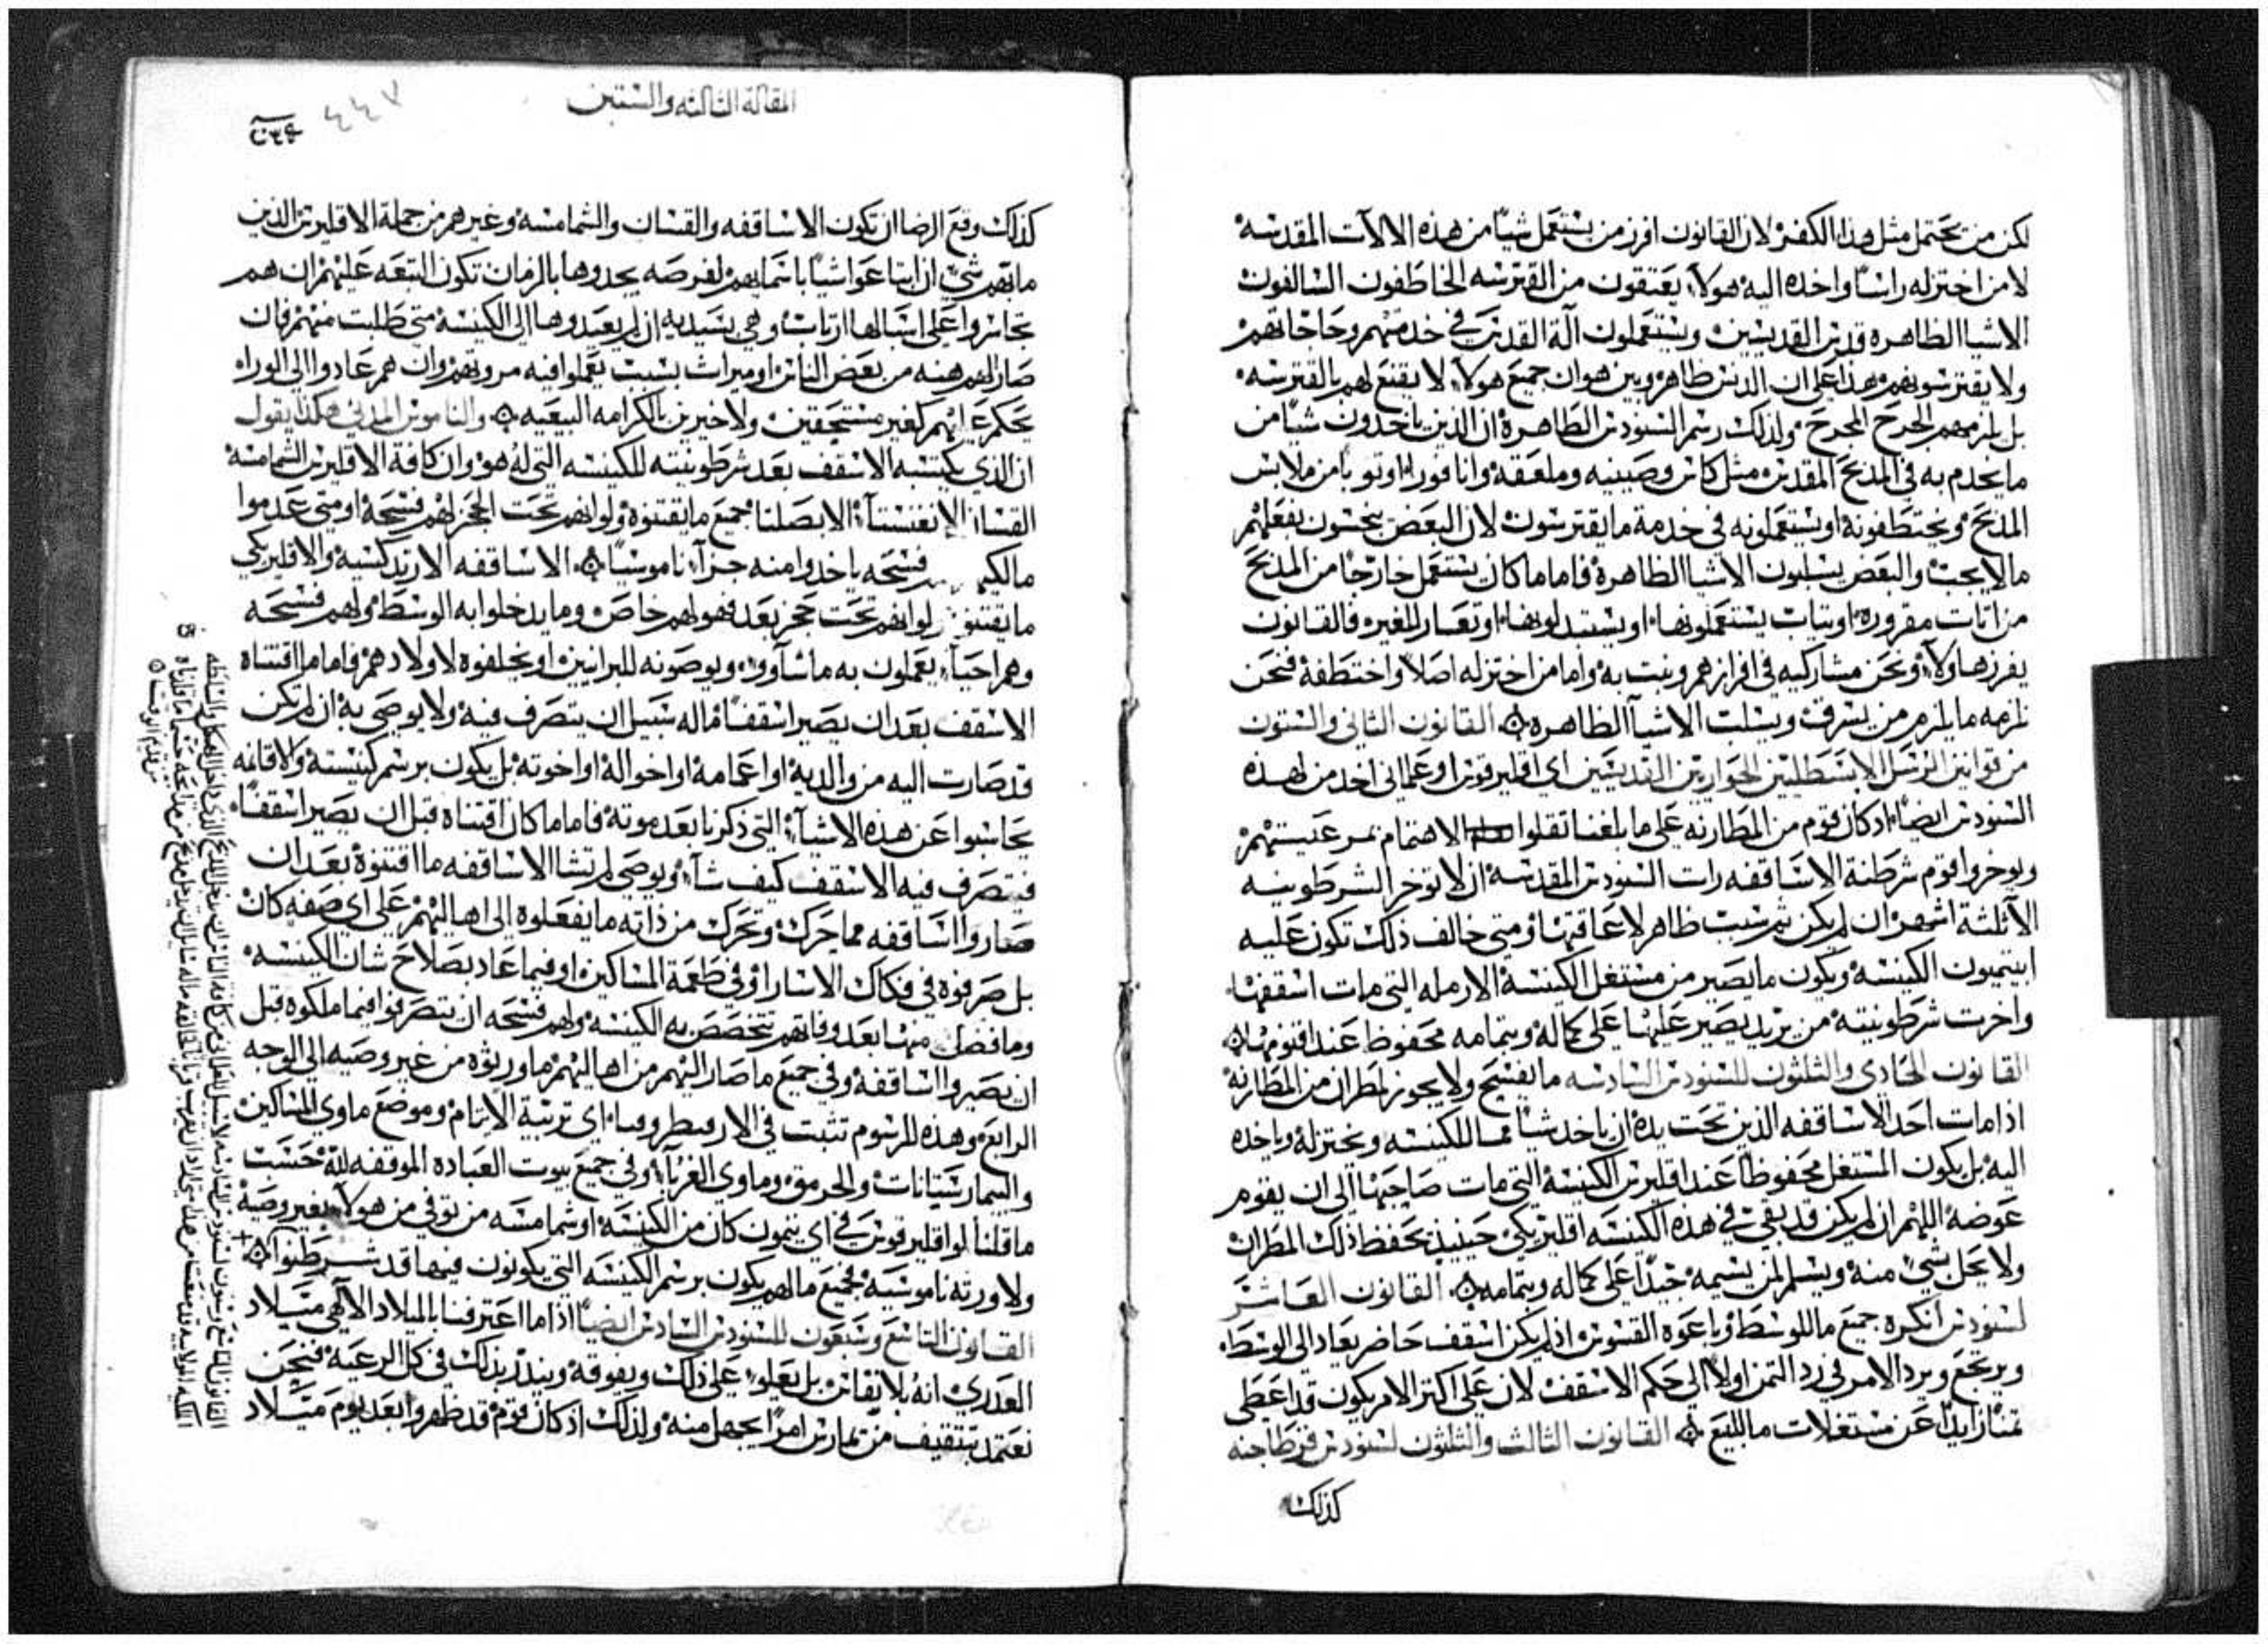 لكن من يحتمل مثل هذا الكفر لان القانون افرز من يستعمل شيًا من هذه الالات المقدسه
لا من اختزله راسًا واخده اليه هولاء يعتقون من القترسه الخاطفون السالفون
الاشيا الظاهره قدس القديسين ويستعملون آلة القدس في خدمتهم وحاجاتهم
ولا يقترسونهم هذا على ان الدنس ظاهر وبين هو ان جميع هولاء لا يقنع لهم بالقترسه
بل يلزمهم الجرح المجرح ولذلك رسم السنودس الطاهرة ان الذين ياخدون شيًا من
ما يخدم به في المدبح المقدس مثل كاس وصينيه وملعقة وانافورا او توبا من ملابس
المدبح ويختطفونة او يستعملونه في خدمة ما يقترسون لان البعض ينجسون بفعلهم
ما لا يجب والبعض يسلبون الاشيا الظاهرة فاما ما كان يستعمل خارجًا من المدبح
من اتات مقروره او تياب يستعملونها او يستبدلونها او تعار للغير فالقانون
يفرز هاولاء ونحن مشاركيه في افرازهم ونبت به واما من اختزله اصلًا واختطفة فنحن
نلزمه ما يلزم من يسرق ويسلب الاشيآ الظاهرة القانون الثاني والستون
من قوانين الرسل الابسطليين الحواريين القديسين اي اقليرقوس او علماني اخد من لهذه
السنودس ايضًا ادكان قوم من المطارنه على ما بلغنا تقلوا الاهتمام برعيتهم
ويوخروا قوم شرطنة الاساقفه رات السنودس المقدسه ان لا توخر الشرطونيه
الا ثلثة اشهر ان لم يكن ثم سبب ظاهر لاعاقتها ومتى خالف ذلك تكون عليه
ابيتميون الكنيسة ويكون ما يصير من مستغل الكنيسة الارمله التي مات اسقفها
واخرت شرطونيته من يريد يصير عليها على كماله وبتمامه محفوظ عند اقنومها
القانون الحادي والثلثون للسنودس السادسه ما يفسح ولا يجوز لمطران من المطارنة
اذا مات احد الاساقفه الذين تحت يده ان ياخد شيًا مما للكنيسه ويختزلة وياخده
اليه بل يكون المستغل محفوظًا عند اقليرس الكنيسة التي مات صاحبها الى ان يقوم
عوضة اللهم ان لم يكن قد بقي في هذه الكنيسه اقليريكي حينيذ يحفظ ذلك المطران
ولا يحل شي منه ويسلم لمن يسيمه جيدًا على كماله وبتمامه القانون العاشر
لسنودس انكره جميع ما للوسط وباعوه القسوس اذ لم يكن اسقف حاضر يعاد الى الوسط
ويرتجع ويرد الامر في رد التمن اولًا الى حكم الاسقف لان على اكتر الامر يكون قد اعطى
تمنًا زايدًا عن مستغلات ما للبيع القانون الثالث والثلثون لسنودس قرطاجنه
كذلك
المقالة الثالثة والستين
٤٤٧
كذلك وقع الرضا ان تكون الاساقفه والقسان والشمامسه وغيرهم من جملة الاقليرس الذين
ما لهم شي ان ابتاعوا شيًا باسمايهم لفرصه يجدوها بالزمان تكون التبعه عليهم ان هم
تجاسروا على اشبالها ان لم يعيدوها الى الكنيسة متى طلبت منهم فان
صار لهم هبه من بعض الناس او ميراث بسبب يعملوا فيه مروتهم وان هم عادوا الى الوراء
يحكم عليهم كغير مستحقين ولا خيرين بالكرامه البيعيه والناموس المدني هكذا يقول
ان الذي يكتسبه الاسقف بعد شرطونيته للكنيسه التي له هو وان كافة الاقليرس الشمامسة
القسان الابصلتا جميع ما يقتنوه ولو انهم تحت الحجر لهم فسحة او متى عدموا
فسحه ياخدوا منه جزآء ناموسيًا الاساقفه الارتدكسية والاقليريكي
ما يقتنو لو انهم تحت حجر بعد فهو لهم خاص وما يدخلوا به الوسط ولهم فسحه
وهم احيآء يعملون به ما شآوو ويوصونه للبرانيين او يخلفوه لاولادهم فاما ما اقتناه
الاسقف بعد ان يصير اسقفًا فما له سبيل ان يتصرف فيه ولا يوصي به ان لم تكن
قد صارت اليه من والديه او اعمامه او اخواله او اخوته بل يكون برسم كنيسته ولاقامه
يحاسبوا عن هذه الاشيآء التي ذكرنا بعد موته فاما ما كان اقتناه قبل ان يصير اسقفًا
فيتصرف فيه الاسقف كيف شآء ويوصي لمن تشا الاساقفه ما اقتنوة بعد ان
صاروا اساقفه مما حرك وتحرك من ذاته ما يفعلوة الى اهاليهم على اي صفه كان
بل صرفوة في فكاك الاسارا وفي طعمة المساكين او فيما عاد بصلاح شان الكنيسه
وما فضل منها بعد وفاتهم تتخصص به الكنيسه ولهم فسحه ان يتصرفوا فيما ملكوه قبل
ان يصيروا اساقفه وفي جميع ما صار اليهم من اهاليهم ما ورثوه من غير وصيه الى الوجه
الرابع وهذه الرسوم تثبت في اي تربية الايتام وموضع ماوي المساكين
والبيمارستانات وماوي الغربآء وفي جميع بيوت العباده الموقفه لله حسب
ما قلنا لو اقليرقوس في اي يتمون كان من الكنيسة او شمامسه من توفي من هولاء بغير وصية
ولا ورثه ناموسيه فجميع ما لهم يكون برسم الكنيسه التي يكونون فيها قد شرطنوا
القانون التاسع وسبعون للسنودس السادس ايضًا اذا ما اعترفنا بالميلاد الالهي ميلاد
العدري انه بلا نفاس بل يعلوا على ذلك ويفوقه ويندر بذلك في كل الرعية فنحن
نعتمد بتثقيف من تمارس امرًا يجهل منه ولذلك اذ كان قوم قد ظهروا بعد يوم ميلاد